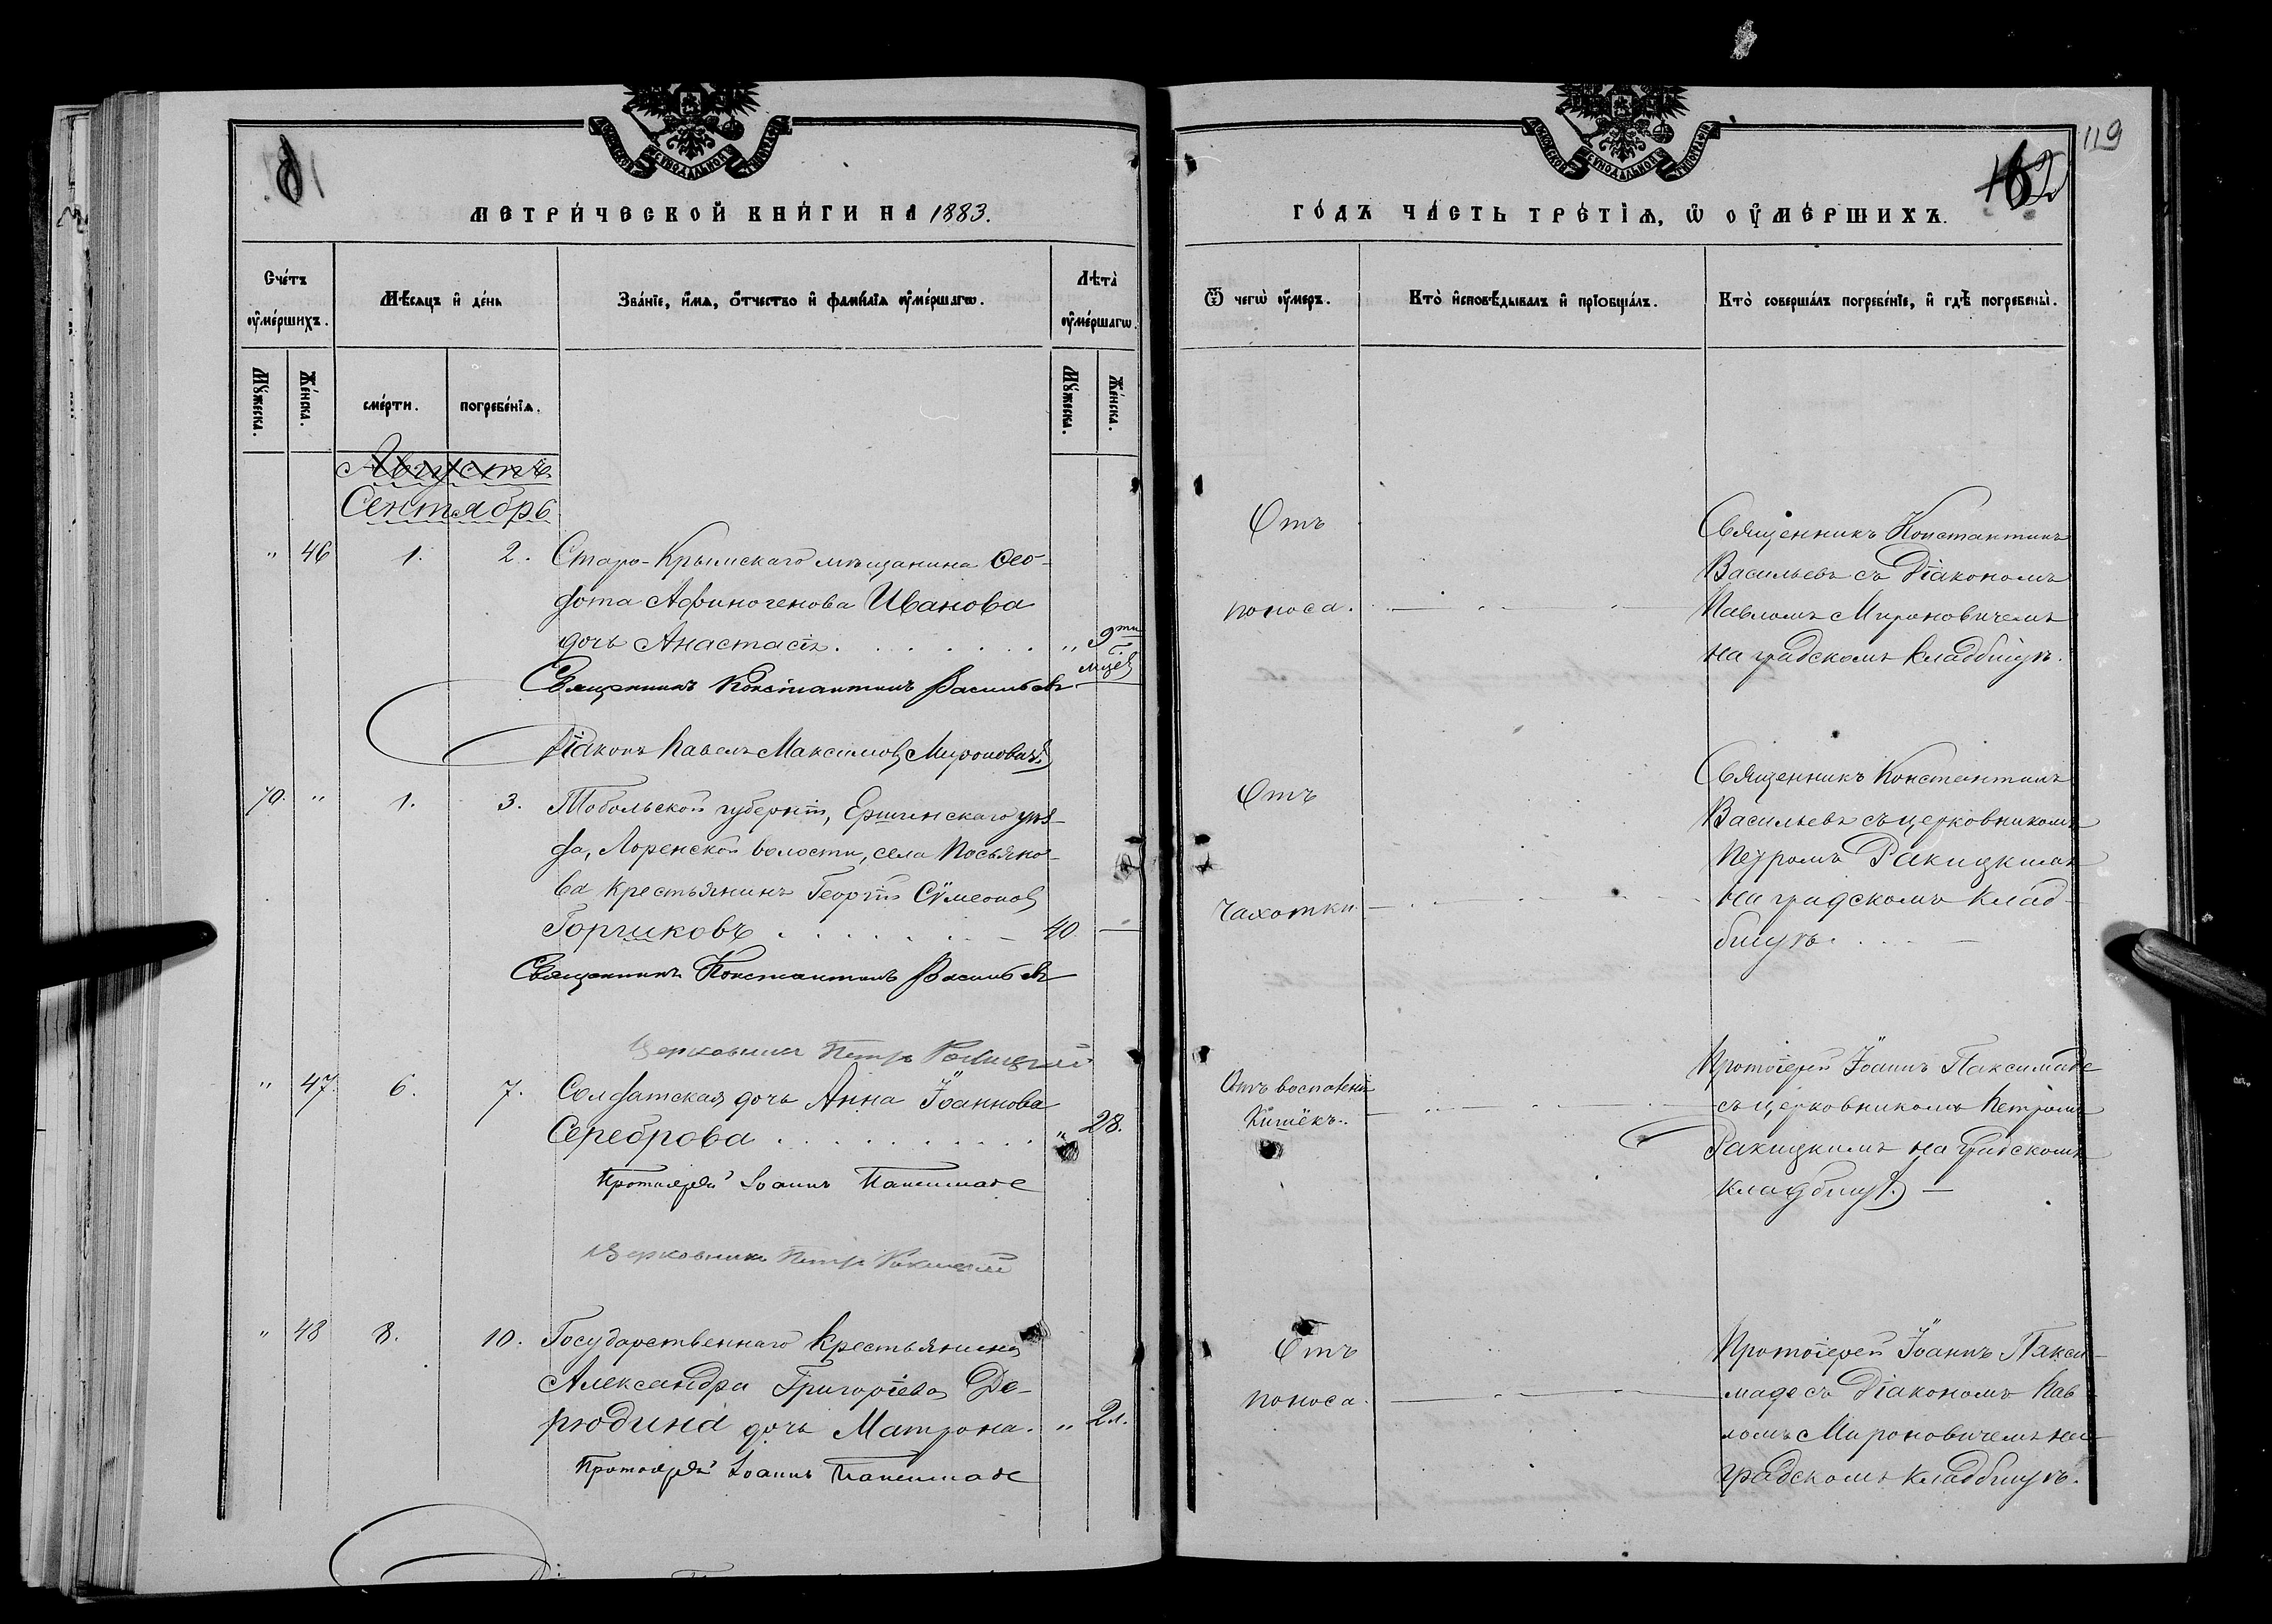 МЕТРИ́ЧЕСКОЙ КНИ́ГИ НА 1883.
Сче́тъ ᲂу҆ме́ршихъ.
Мѣ́сяцъ и҆ де́нь
Зва́нїе, и҆́мѧ, ѻ҆́тчество и҆ фами́лїѧ ᲂу҆ме́ршагѡ.
Лѣ́та ᲂу҆ме́ршагѡ.
Мꙋ́жеска.
Же́нска.
сме́рти.
погребе́нїѧ.
Мꙋ́жеска.
Же́нска.
Августъ
Сентябрь
" 46 1. 2. Старо-Крымскаго мѣщанина Ѳео-
дота Афиногенова Иванова
дочь Анастасія. " 9ти
мцев
Священникъ Константинъ Васильевъ
Діаконъ Павелъ Максимовъ Мироновичъ
70. " 1. 3. Тобольской губерніи, Ершинскаго уѣз-
да, Лоренской волости, села Посьяно-
ва крестьянинъ Георгій Сѵмеоновъ
Горшковъ 40 —
Священникъ Константинъ Васильевъ
Церковникъ Петръ Ракицкій
" 47. 6. 7. Солдатская дочь Анна Іоаннова
Сереброва " 28.
Протоіерей Іоаннъ Паксимаде
Церковникъ Петръ Ракицкій
" 48 8. 10. Государственнаго крестьянина
Александра Григоріева Де-
рюдина дочь Матрона. " 2л.
Протоіерей Іоаннъ Паксимаде
119
162
ГО́ДЪ ЧА́СТЬ ТРЕ́ТЇѦ, Ѡ҆ ОУ҆МЕ́РШИХЪ.
Ѿ чегѡ̀ ᲂу҆́меръ.
Кто̀ и҆сповѣ́дывалъ и҆ прїобща́лъ.
Кто̀ соверша́лъ погребе́нїе, и҆ гдѣ̀ погребены̀.
Отъ
поноса.
Священникъ Константинъ
Васильевъ съ Діакономъ
Павломъ Мироновичемъ
на градскомъ кладбищѣ.
Отъ
чахотки
Священникъ Константинъ
Васильевъ съ церковникомъ
Петромъ Ракицкимъ
на градскомъ клад-
бищѣ.
Отъ воспаленія
Кишекъ.
Протоіерей Іоаннъ Паксимаде
съ церковникомъ Петромъ
Ракицкимъ на градскомъ
кладбищѣ. —
Отъ
поноса.
Протоіерей Іоаннъ Пакси-
маде съ Діакономъ Пав-
ломъ Мироновичемъ на
градскомъ кладбищѣ.